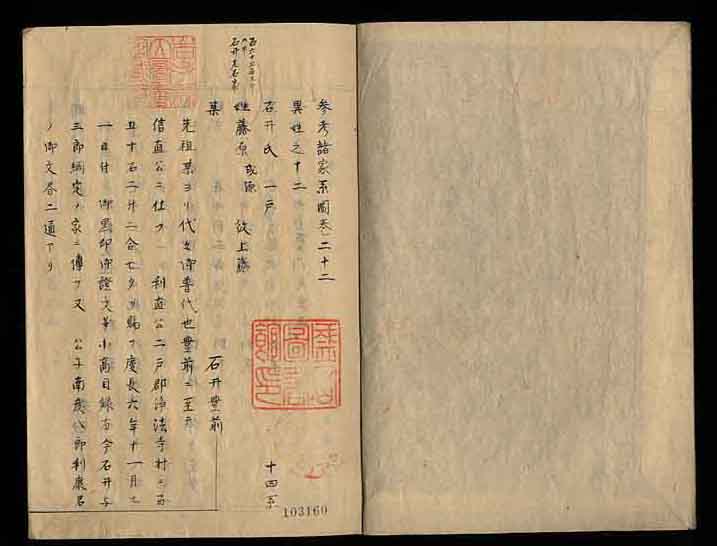 参考諸家系図巻二十二
異姓之十二
石井氏 一戸
姓藤原 或源 紋上藤
十四系
某 石井豊前
先祖某ヨリ代々御譜代也豊前ニ至テ
信直公ニ仕フ 利直公二戸郡浄法寺村ニ
五十石二斗二合七夕ヲ賜フ慶長六年十一月
一日付 御黒印御證文並小高目録有今石井与
三郎綱定ノ家ニ傳フ又 公子南
ノ御文巻二通アリ
103160